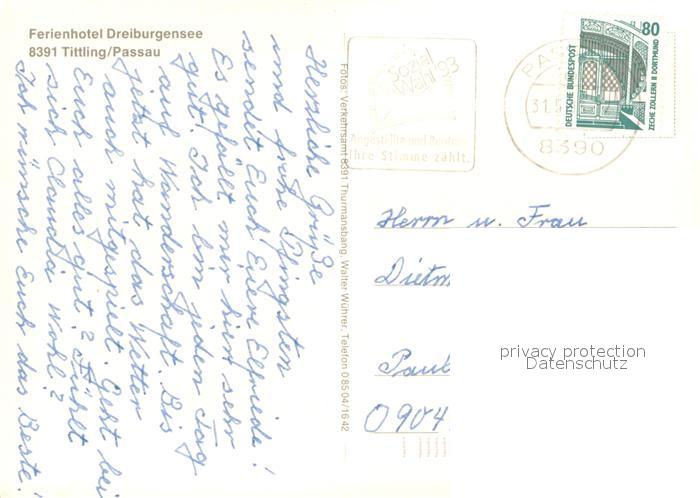 Ferienhotel Dreiburgensee
8391 Tittling/Passau
Herzliche Grüße
und frohe Pfingsten
sendet Euch Euere Elfriede!
Es gefällt mir hier sehr
gut. Ich bin jeden Tag
auf Wanderschaft. Bis
jetzt hat das Wetter
auch mitgespielt. Geht bei
Euch alles gut? Fühlt
sich Claudia wohl?
Ich wünsche Euch das Beste!
Fotos: Verkehrsamt 8391 Thurmansbang, Walter Wührer, Telefon 0 85 04/16 42
Sozial
Wahl '93
Angestellte und Rentner
Ihre Stimme zählt.
PAS
31.5
8390
80
DEUTSCHE BUNDESPOST
ZECHE ZOLLERN II DORTMUND
Herrn u. Frau
Dietm
Paul
0904
privacy protection
Datenschutz